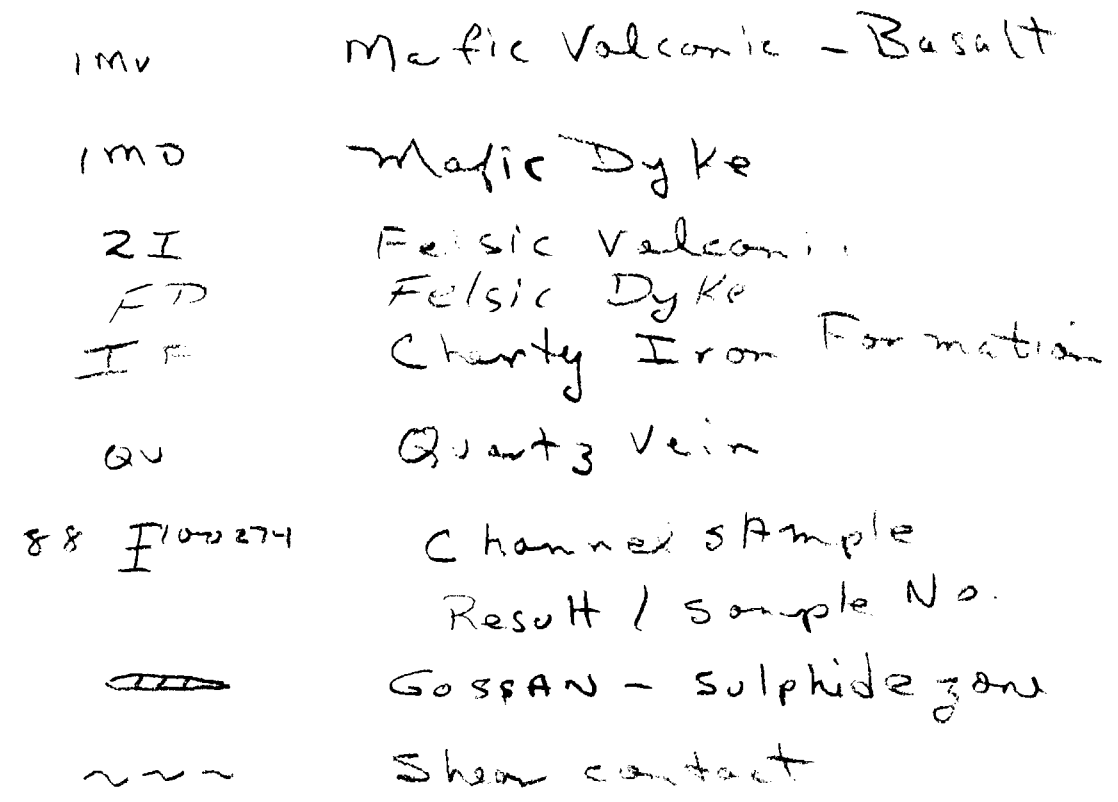 1MV Mafic Volcanic - Basalt
1MD Mafic Dyke
2I Felsic
FD Felsic Dyke
IF Cherty Iron Formation
QV Quartz Vein
88 Channel SAmple
Result / Sample No.
GOSSAN - Sulphide zone
~~~ Shear contact